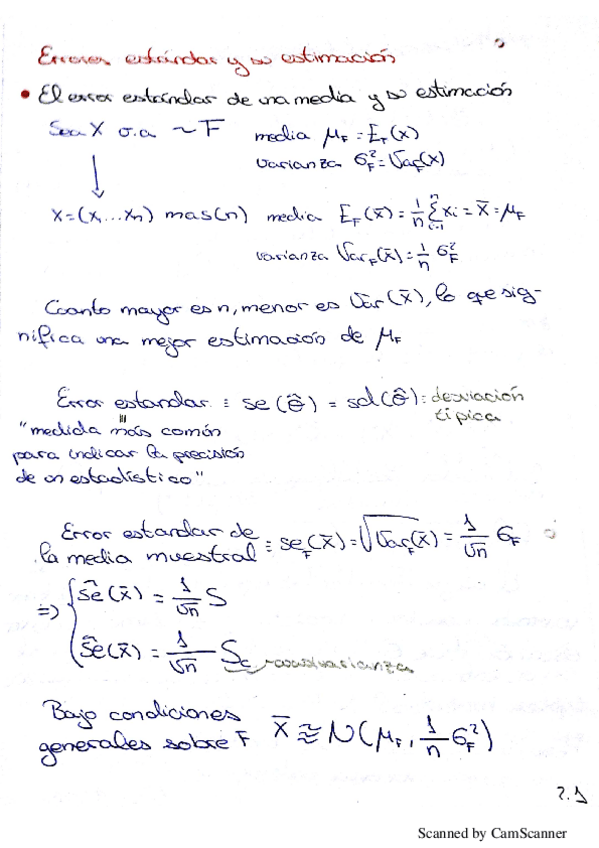 Errores estándar y su estimación
• El error estándar de una media y su estimación
Sea X v.a ~ F media μ_F = E_F(x)
varianza σ_F² = Var_F(x)
X=(x₁...xₙ) mas(n) media E_F(x̄) = 1/n Σ_{i=1}^n xᵢ = x̄ = μ_F
varianza Var_F(x̄) = 1/n σ_F²
Cuanto mayor es n, menor es Var(x̄), lo que sig-
nifica una mejor estimación de μ_F
Error estandar ≡ se(θ̂) = sd(θ̂): desviación
típica
"medida más común
para indicar la precisión
de un estadístico"
Error estandar de
la media muestral ≡ se_F(x̄) = √Var_F(x̄) = 1/√n σ_F
⇒ { ŝe(x̄) = 1/√n S
ŝe(x̄) = 1/√n S_c → cuasivarianza
Bajo condiciones
generales sobre F x̄ ≈ N(μ_F, 1/n σ_F²)
2.1
Scanned by CamScanner